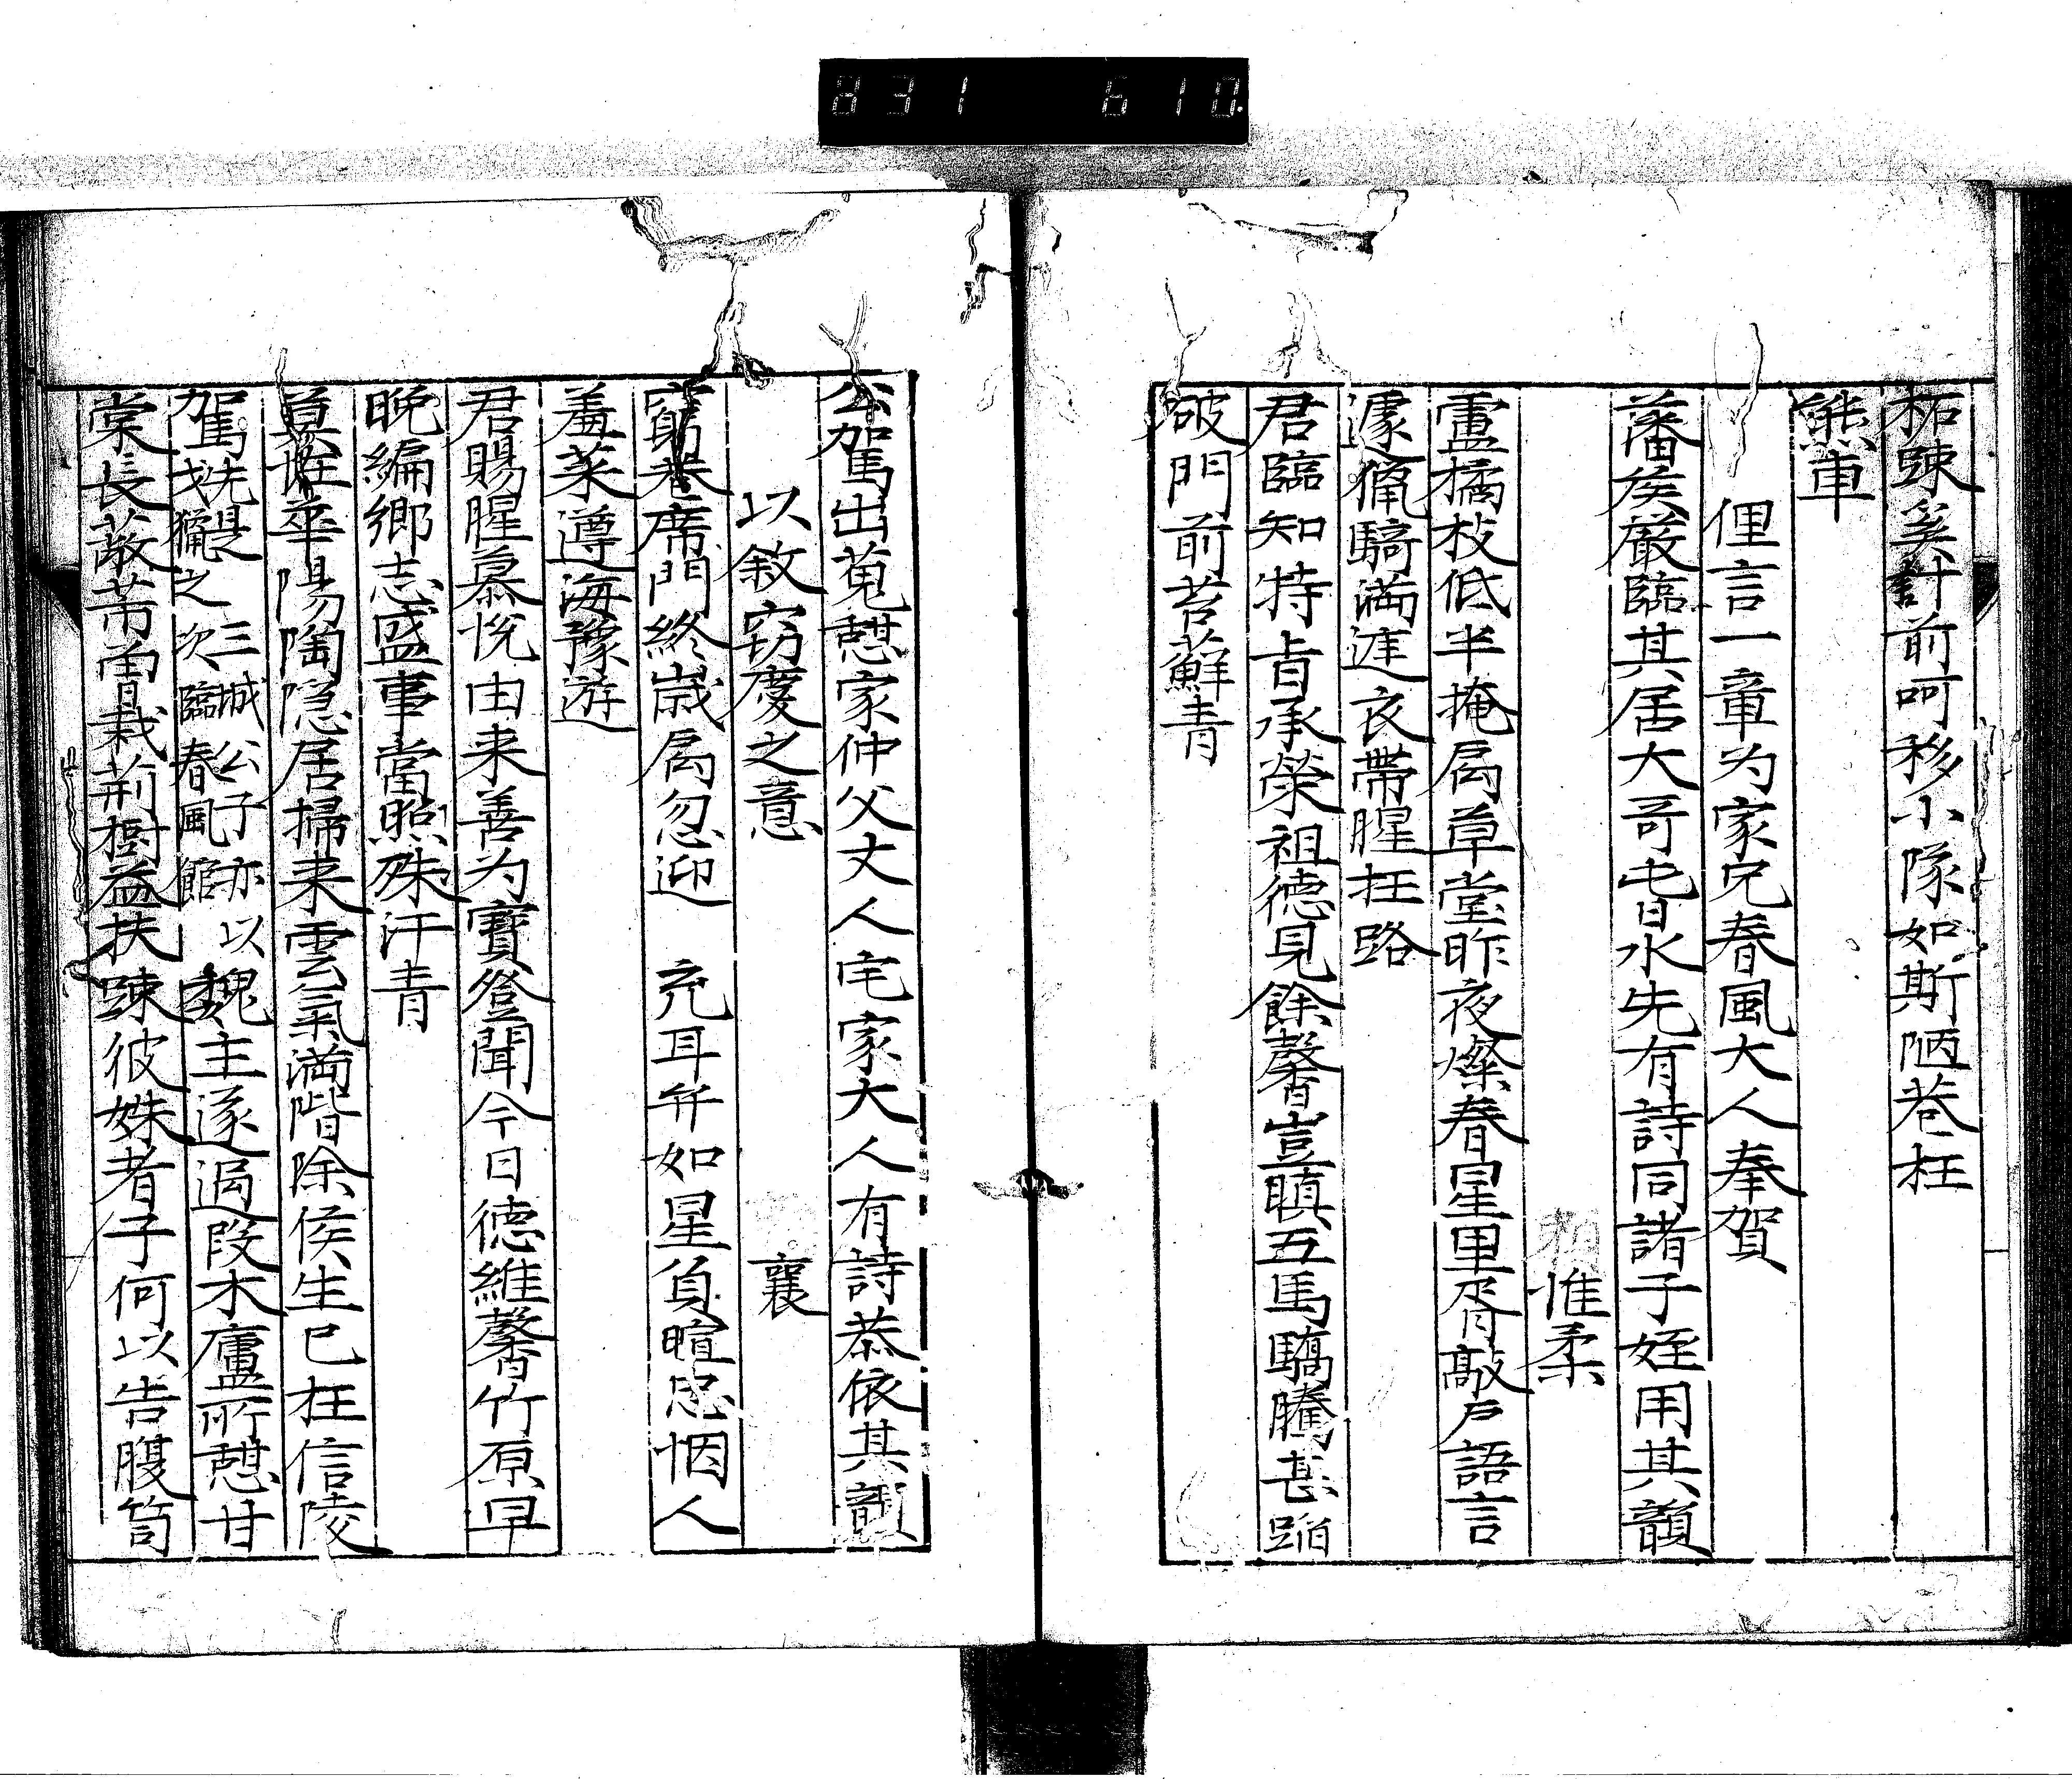 831 610
柘踈奚計前呵移小隊如斯陋巷枉
熊車
俚言一章为家兄春風大人奉賀
藩矦嚴臨其居大哥屯水先有詩同諸子姪用其韻
惟柔
盧橘枝低半掩扄草堂昨夜燦春星里胥敲戶語言
遽獵騎満逬衣帶腥枉路
君臨知特㫖承榮祖徳見餘馨豈瞋五馬驕騰甚蹈
破門前苔蘚青
公駕出蒐憩家仲父丈人宅家大人有詩恭依其韻
以敘窃慶之意
襄
窮巷席門終嵗扄忽迎 充耳弁如星負暄忠悃人
羞莱遵海豫遊
君賜腥慕悅由来善为寶登聞今日徳維馨竹原早
晩編郷志盛事當照殊汗青
莫唯平陽陶隠居掃来雲氣満階除侯生已枉信陵
駕先是三城公子亦以戈獵之次臨春風館魏主遂過段木廬所憩甘
棠長蔽芾曽栽荊樹益扶踈彼姝者子何以告腹笥